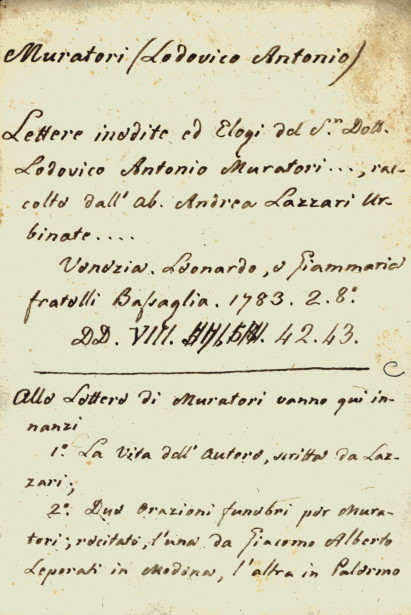 Muratori (Lodovico Antonio)
Lettere inedite ed Elogi del S.r Dott.
Lodovico Antonio Muratori..., rac-
colte dall' Ab. Andrea Lazzari Ur-
binate....
Venezia. Leonardo, e Giammaria
fratelli Bassaglia. 1783. 2. 8.º
DD. VIII. 42. 43.
C
Alle Lettere di Muratori vanno quì in-
nanzi
1.º La Vita dell' Autore, scritta da Laz-
zari;
2.º Due Orazioni funebri per Mura-
tori; recitate, l'una da Giacomo Alberto
Leporati in Modena, l'altra in Palermo